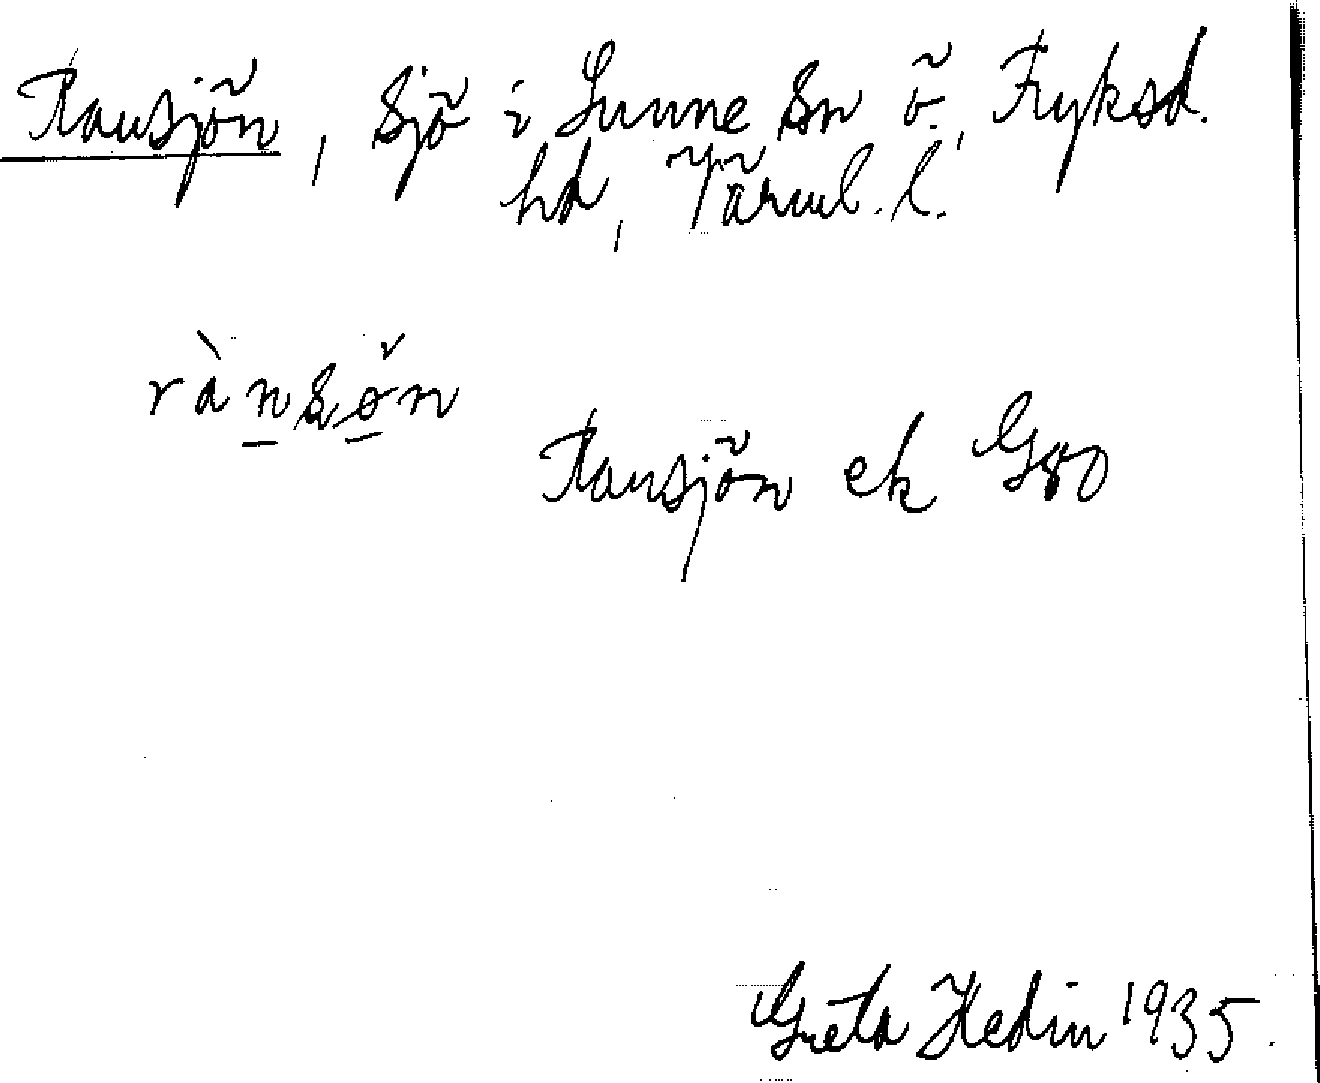 Ransjön, sjö i Sunne sn ö., Fryksd.
hd, Värml. l.
rànsǒn
Ransjön ek G80
Greta Hedin 1935.